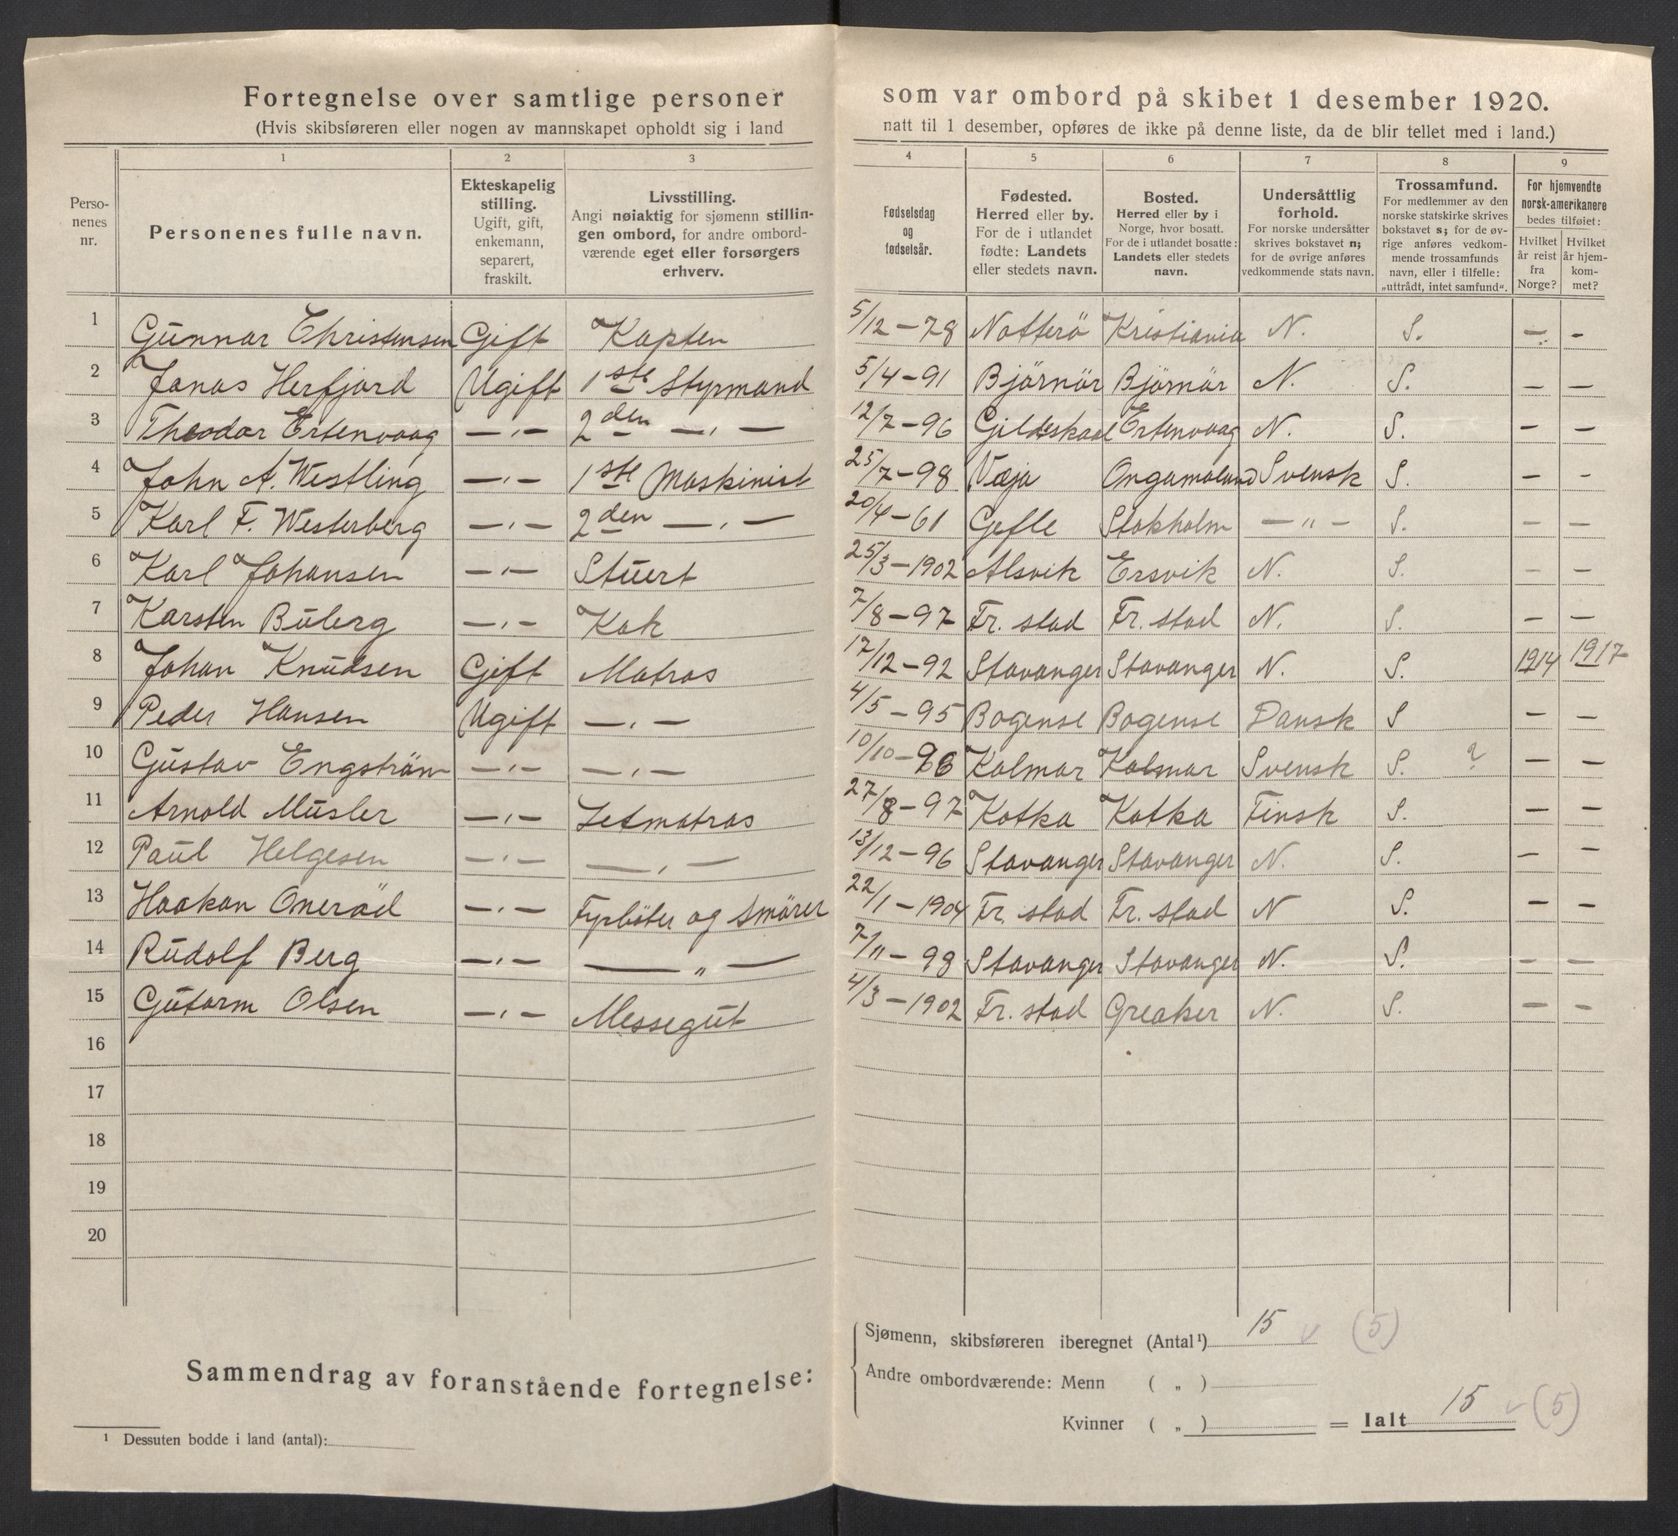 Fortegnelse over samtlige personer som var ombord på skibet 1 desember 1920.
(Hvis skibsføreren eller nogen av mannskapet opholdt sig i land natt til 1 desember, opføres de ikke på denne liste, da de blir tellet med i land.)
Personenes nr.
1 Personenes fulle navn.
2 Ekteskapelig stilling. Ugift, gift, enkemann, separert, fraskilt.
3 Livsstilling. Angi nøiaktig for sjømenn stillingen ombord, for andre ombordværende eget eller forsørgers erhverv.
4 Fødselsdag og fødselsår.
5 Fødested. Herred eller by. For de i utlandet fødte: Landets eller stedets navn.
6 Bosted. Herred eller by i Norge, hvor bosatt. For de i utlandet bosatte: Landets eller stedets navn.
7 Undersåttlig forhold. For norske undersåtter skrives bokstavet n; for de øvrige anføres vedkommende stats navn.
8 Trossamfund. For medlemmer av den norske statskirke skrives bokstavet s; for de øvrige anføres vedkommende trossamfunds navn, eller i tilfelle: „uttrådt, intet samfund“.
9 For hjemvendte norsk-amerikanere bedes tilføiet: Hvilket år reist fra Norge? Hvilket år hjemkommet?
1 Gunnar Christensen Gift Kapten 5/12-78 Notterö Kristiania N. S. — —
2 Jonas Herfjord Ugift 1ste Styrmand 5/4-91 Björnör Björnör N. S. — —
3 Theodor Ertenvaag —„— 2den —„— 12/7-96 Gildeskaal Ertenvaag N. S. — —
4 John A. Westling —„— 1ste Maskinist 25/7-98 Svensk S. — —
5 Karl F. Westerberg —„— 2den —„— 20/4-61 Gefle Stokholm —„— S. — —
6 Karl Johansen —„— Stuert 25/3-1902 Alsvik Ersvik N. S. — —
7 Karsten Buberg —„— Kok 7/8-97 Fr. stad Fr. stad N. S. — —
8 Johan Knudsen Gift Matros 17/12-92 Stavanger Stavanger N. S. 1914 1917
9 Peder Hansen Ugift —„— 4/5-95 Bogense Bogense Dansk S — —
10 Gustav Engström —„— —„— 10/10-96 Kalmar Kalmar Svensk S. ? — —
11 Arnold Musler —„— Letmatros 27/8-97 Kotka Kotka Finsk S. — —
12 Paul Helgesen —„— —„— 13/12-96 Stavanger Stavanger N. S. — —
13 Haakon Oneröd —„— Fyrböter og Smörer 22/1-1904 Fr. stad Fr. stad N S. — —
14 Rudolf Berg —„— —„— 7/11-98 Stavanger Stavanger N. S. — —
15 Gutorm Olsen —„— Messegut 4/3-1902 Fr. stad Greaker N. S. — —
16
17
18
19
20
Sammendrag av foranstående fortegnelse:
Sjømenn, skibsføreren iberegnet (Antal¹) 15 (5)
Andre ombordværende: Menn ( „ )
Kvinner ( „ ) = Ialt 15 (5)
¹ Dessuten bodde i land (antal):